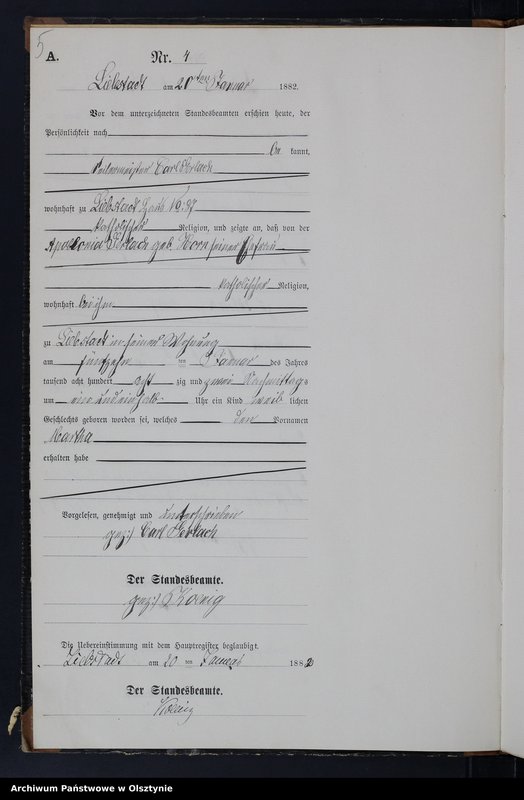 5
A.
Nr. 4
Liebstadt am 20ten Januar 1882.
Vor dem unterzeichneten Standesbeamten erschien heute, der
Persönlichkeit nach
be kannt,
Carl
wohnhaft zu Liebstadt No: 37
katholischer Religion, und zeigte an, daß von der
geb. Horn seiner Ehefrau
katholischer Religion,
wohnhaft bei ihm
zu Liebstadt in seiner Wohnung
am fünfzehn ten Januar des Jahres
tausend acht hundert acht zig und zwei Nachmittags
um ein und einhalb Uhr ein Kind weib lichen
Geschlechts geboren worden sei, welches den Vornamen
Martha
erhalten habe
Vorgelesen, genehmigt und unterschrieben
gez:) Carl
Der Standesbeamte.
gez:) Koenig
Die Uebereinstimmung mit dem Hauptregister beglaubigt.
Liebstadt am 20 ten Januar 1882
Der Standesbeamte.
Koenig
Archiwum Państwowe w Olsztynie